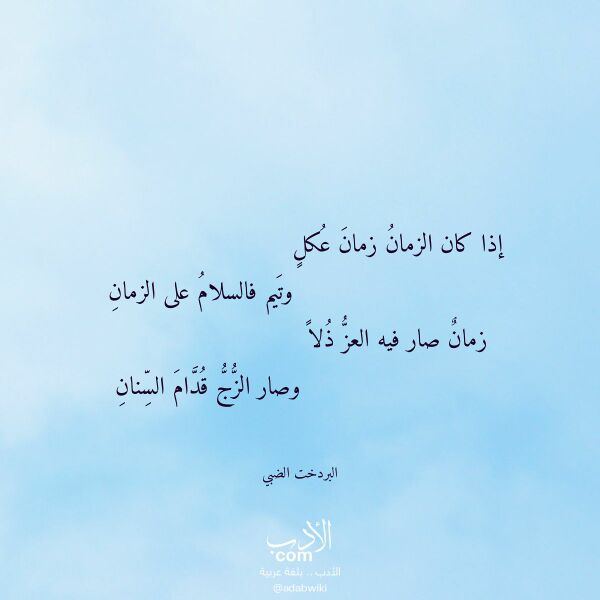 إذا كان الزمانُ زمانَ عُكلٍ
وتَيم فالسلامُ على الزمانِ
زمانٌ صار فيه العزُّ ذُلاً
وصار الزُّجُّ قُدَّامَ السِّنانِ
البردخت الضبي
الأدب
.com
الأدب .. بلغة عربية
@adabwiki